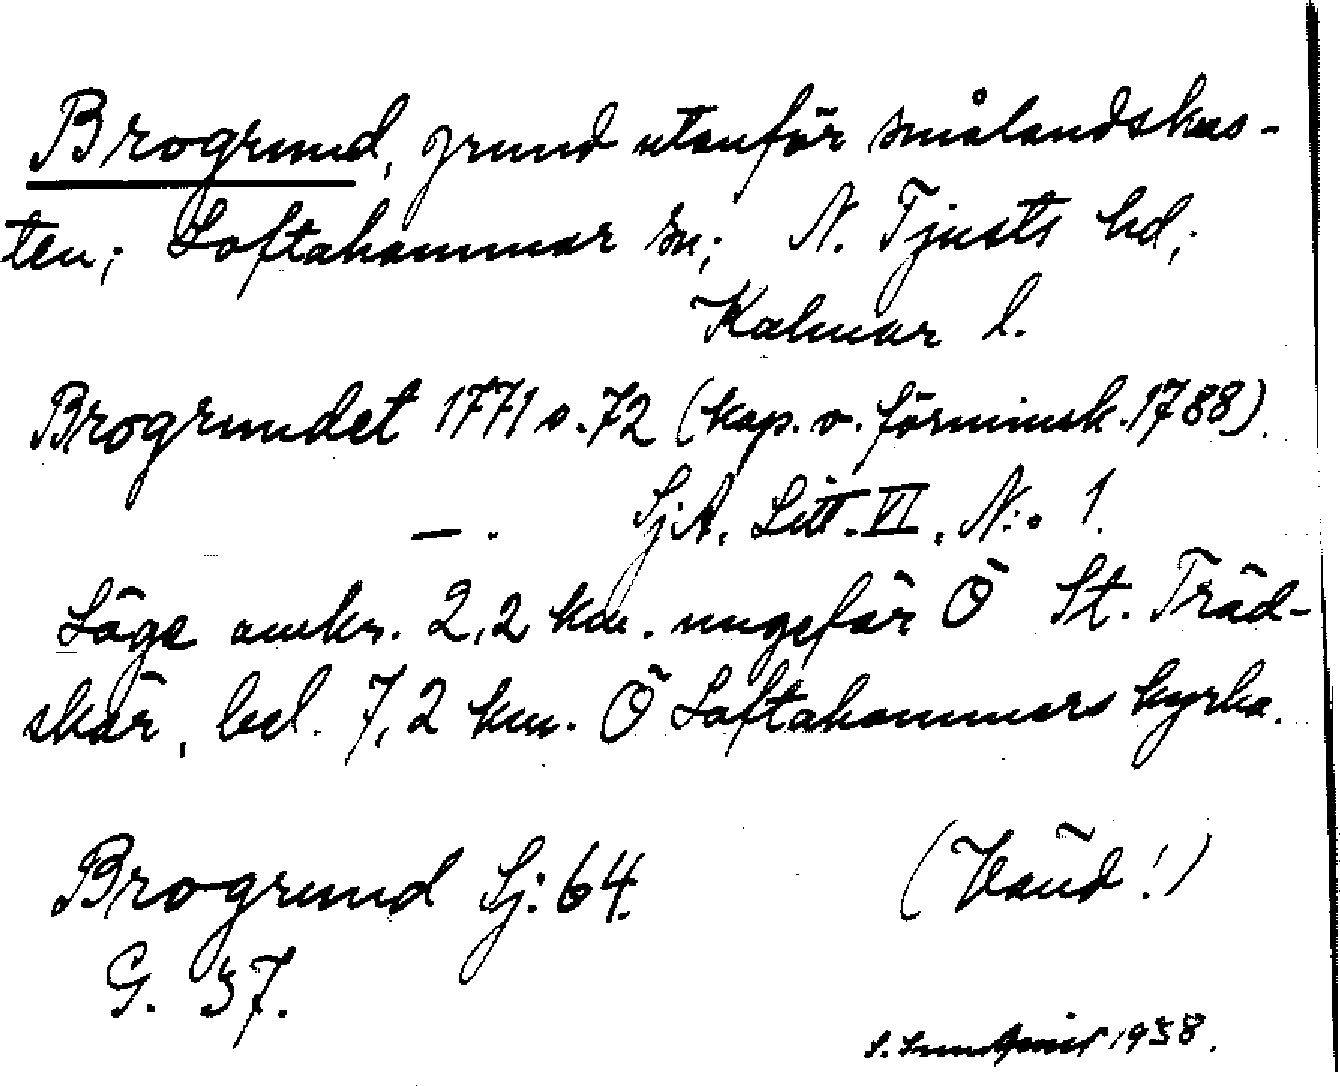 Brogrund, grund utanför smålandskus-
ten; Loftahammar sn; N. Tjusts hd;
Kalmar l.
Brogrundet 1771 s. 72 (kop. o. förminsk. 1788).
— . SjA. Litt. VI, N:o 1.
Läge omkr. 2,2 km. ungefär Ö St. Träd-
skär, bel. 7,2 km. Ö Loftahammars kyrka.
Brogrund Sj: 64. (Vänd!)
G. 37.
1938.